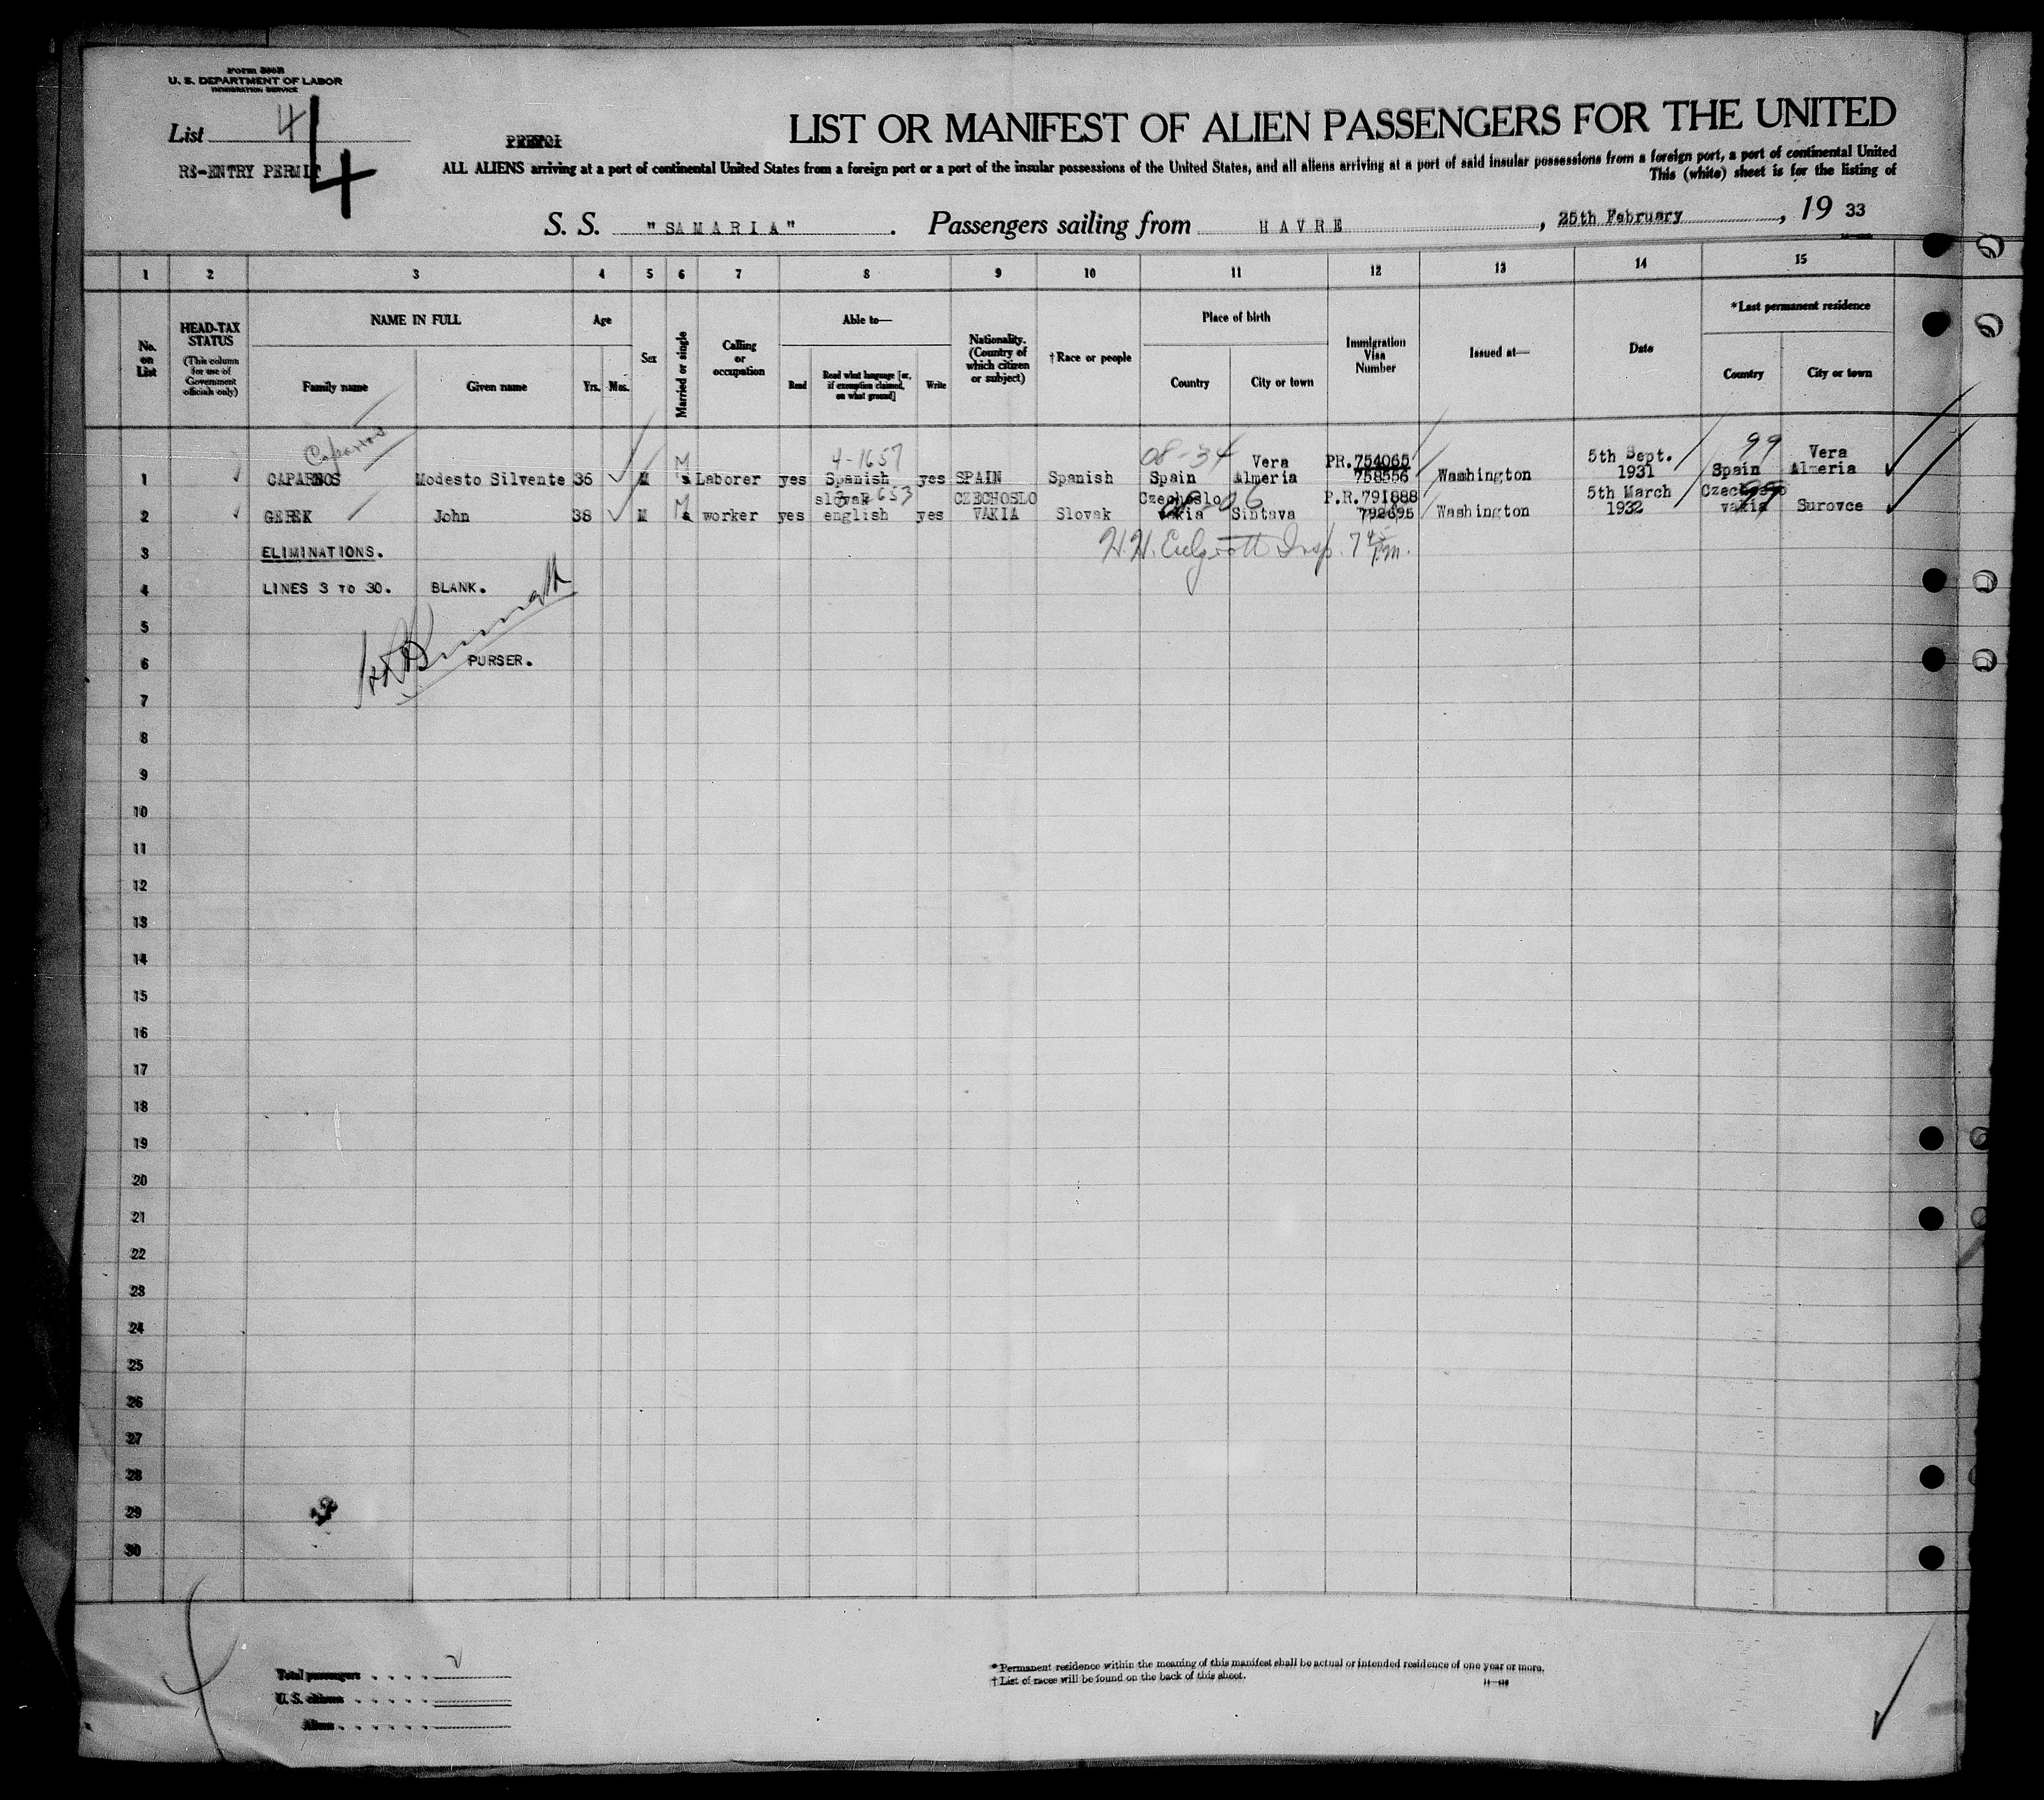 Form 500B
U. S. DEPARTMENT OF LABOR
IMMIGRATION SERVICE
List 4
4
RE-ENTRY PERMIT
LIST OR MANIFEST OF ALIEN PASSENGERS FOR THE UNITED
ALL ALIENS arriving at a port of continental United States from a foreign port or a port of the insular possessions of the United States, and all aliens arriving at a port of said insular possessions from a foreign port, a port of continental United
This (white) sheet is for the listing of
S. S. "SAMARIA". Passengers sailing from HAVRE, 25th February, 19 33
1 2 3 4 5 6 7 8 9 10 11 12 13 14 15
No. on List
HEAD-TAX STATUS (This column for use of Government officials only)
NAME IN FULL
Family name Given name
Age
Yrs. Mos.
Sex
Married or single
Calling or occupation
Able to—
Read Read what language [or, if exemption claimed, on what ground] Write
Nationality. (Country of which citizen or subject)
†Race or people
Place of birth
Country City or town
Immigration Visa Number
Issued at—
Date
*Last permanent residence
Country City or town
Caparros 4-1657 08-34 Vera PR.754065 5th Sept. 99 Vera
1 CAPARNOS Modesto Silvente 36 M M s Laborer yes Spanish yes SPAIN Spanish Spain Almeria 758556 Washington 1931 Spain Almeria
slovak 653 CZECHOSLO Czechoslo 06 P.R.791888 5th March Czechoslo
2 GEREK John 38 M M s worker yes english yes VAKIA Slovak vakia Sintava 792695 Washington 1932 vakia 99 Surovce
3 ELIMINATIONS. H.H. Insp. 7 45 p.m.
4 LINES 3 TO 30. BLANK.
5
6 PURSER.
7
8
9
10
11
12
13
14
15
16
17
18
19
20
21
22
23
24
25
26
27
28
29
30
Total passengers 2
U. S. citizens
Aliens
*Permanent residence within the meaning of this manifest shall be actual or intended residence of one year or more.
†List of races will be found on the back of this sheet.